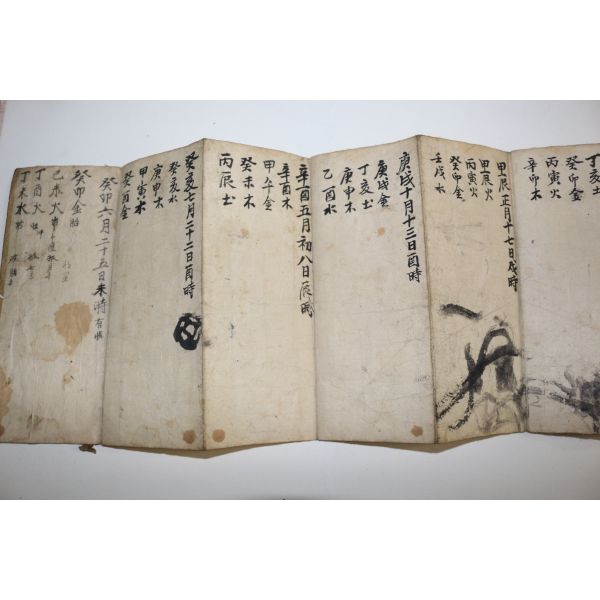 癸卯金
丙寅火
辛卯木
甲辰正月十七日戌時
甲辰火
丙寅火
癸卯金
壬戌水
庚戌十月十三日酉時
庚戌金
丁亥土
庚申木
乙酉水
辛酉五月初八日辰時
辛酉木
甲午金
癸未木
丙辰土
癸亥七月二十二日酉時
癸亥水
庚申木
甲寅
癸酉金
癸卯六月二十五日未時
癸卯金胎
己未火
丁酉火
丁未水